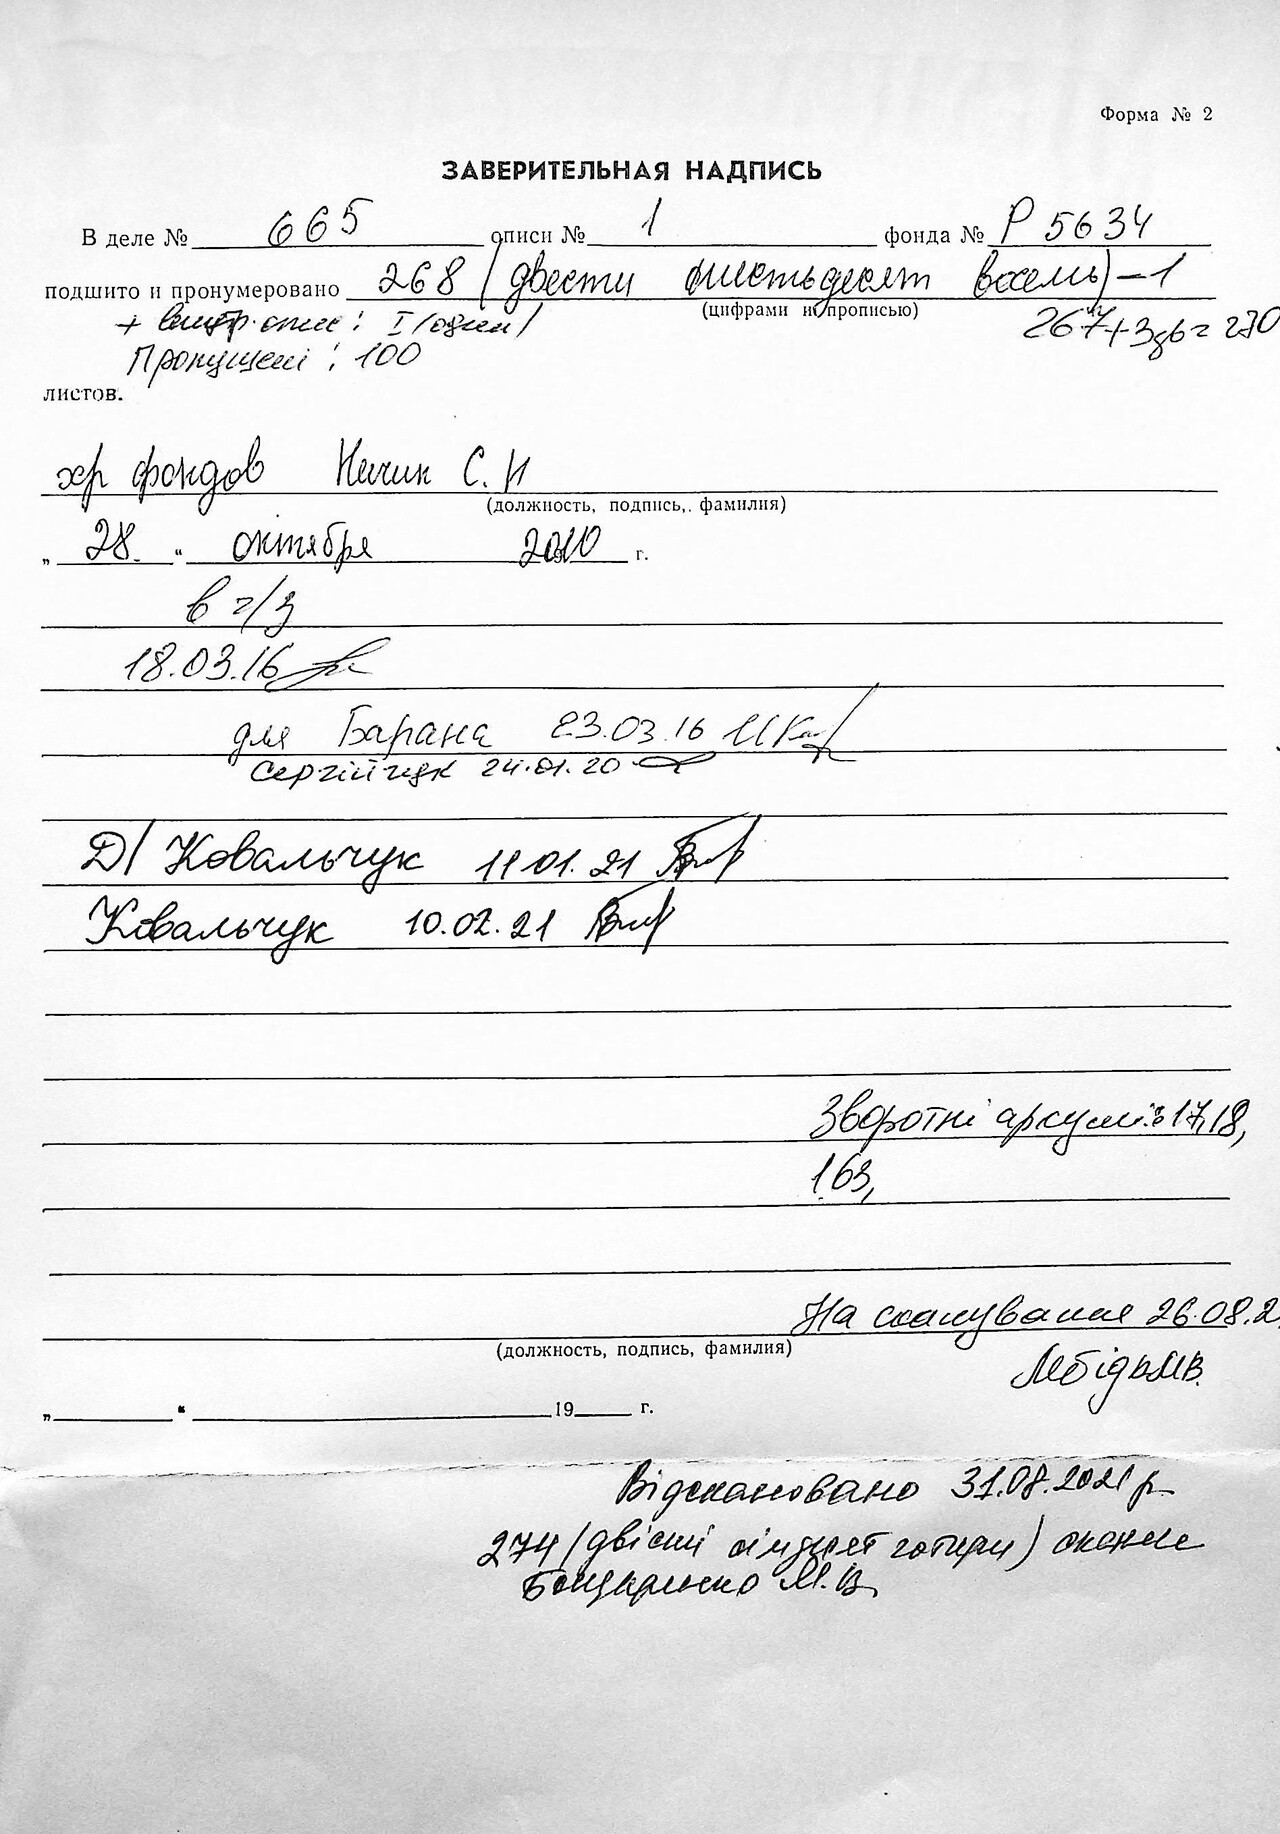 Форма № 2
ЗАВЕРИТЕЛЬНАЯ НАДПИСЬ
В деле № 665 описи № 1 фонда № Р 5634
подшито и пронумеровано 268 (двести шестьдесят восемь) – 1
(цифрами и прописью)
+ внутр. опис: I (один)
267 + 3зв = 270
Пропущені: 100
листов.
хр фондов С. И
(должность, подпись, фамилия)
„ 28 “ октября 2010 г.
в ч/з
18.03.16
для Барана 23.03.16
Сергійчук 24.01.20
Д/ Ковальчук 11.01.21
Ковальчук 10.02.21
Зворотні аркуші: 17, 18,
163,
На сканування 26.08.2
(должность, подпись, фамилия)
Лебідь М.В.
„ “ 19 г.
Відскановано 31.08.2021 р.
274 (двісті сімдесят чотири) скани
Бондаренко М.В.